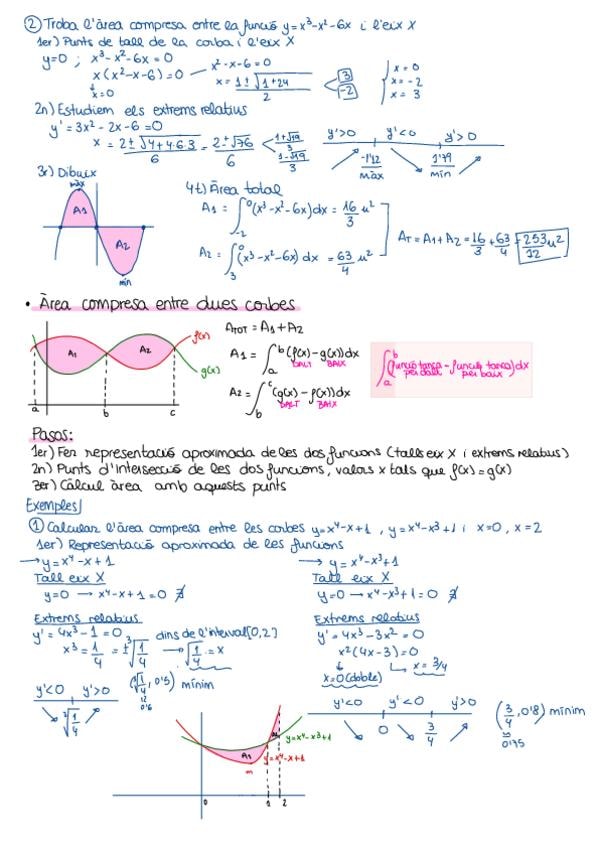 ② Troba l'àrea compresa entre la funció y=x³-x²-6x i l'eix X
1er) Punts de tall de la corba i l'eix X
y=0 ; x³-x²-6x=0
x(x²-x-6)=0 x²-x-6=0
x=0
x = 1±√1+24 / 2 3 -2
x=0
x=-2
x=3
2n) Estudiem els extrems relatius
y' = 3x²-2x-6=0
x = 2±√4+4·6·3 / 6 = 2±√76 / 6 1+√19 / 3 1-√19 / 3
y'>0 y'<0 y'>0
-1'12 màx 1'79 mín
3r) Dibuix
màx
A1
A2
mín
4t) Àrea total
A1 = ∫₋₂⁰ (x³-x²-6x)dx = 16/3 u²
A2 = ∫₃⁰ (x³-x²-6x)dx = 63/4 u²
AT = A1+A2 = 16/3 + 63/4 = 253/12 u²
• Àrea compresa entre dues corbes
A1 A2 f(x)
g(x)
a b c
ATOT = A1+A2
A1 = ∫ₐᵇ (f(x)-g(x))dx
DALT BAIX
A2 = ∫_b^c (g(x)-f(x))dx
DALT BAIX
∫ₐᵇ (funció tanca per dalt - funció tanca per baix)dx
Pasos:
1er) Fer representació aproximada de les dos funcions (talls eix X i extrems relatius)
2n) Punts d'intersecció de les dos funcions, valors x tals que f(x)=g(x)
3er) Càlcul àrea amb aquests punts
Exemples/
① Calcular l'àrea compresa entre les corbes y=x⁴-x+1 , y=x⁴-x³+1 i x=0, x=2
1er) Representació aproximada de les funcions
→ y=x⁴-x+1
Tall eix X
y=0 → x⁴-x+1=0 ∄
Extrems relatius
y' = 4x³-1=0 dins de l'interval [0,2]
x³ = 1/4 = ±∛1/4 → ∛1/4 = x
y'<0 y'>0
∛1/4
(∛1/4, 0'5) mínim
0'6
→ y=x⁴-x³+1
Tall eix X
y=0 → x⁴-x³+1=0 ∄
Extrems relatius
y' = 4x³-3x²=0
x²(4x-3)=0
x=0(doble) x=3/4
y'<0 y'<0 y'>0
0 3/4
(3/4, 0'8) mínim
0'75
y=x⁴-x³+1
A1
y=x⁴-x+1
m
0 1 2